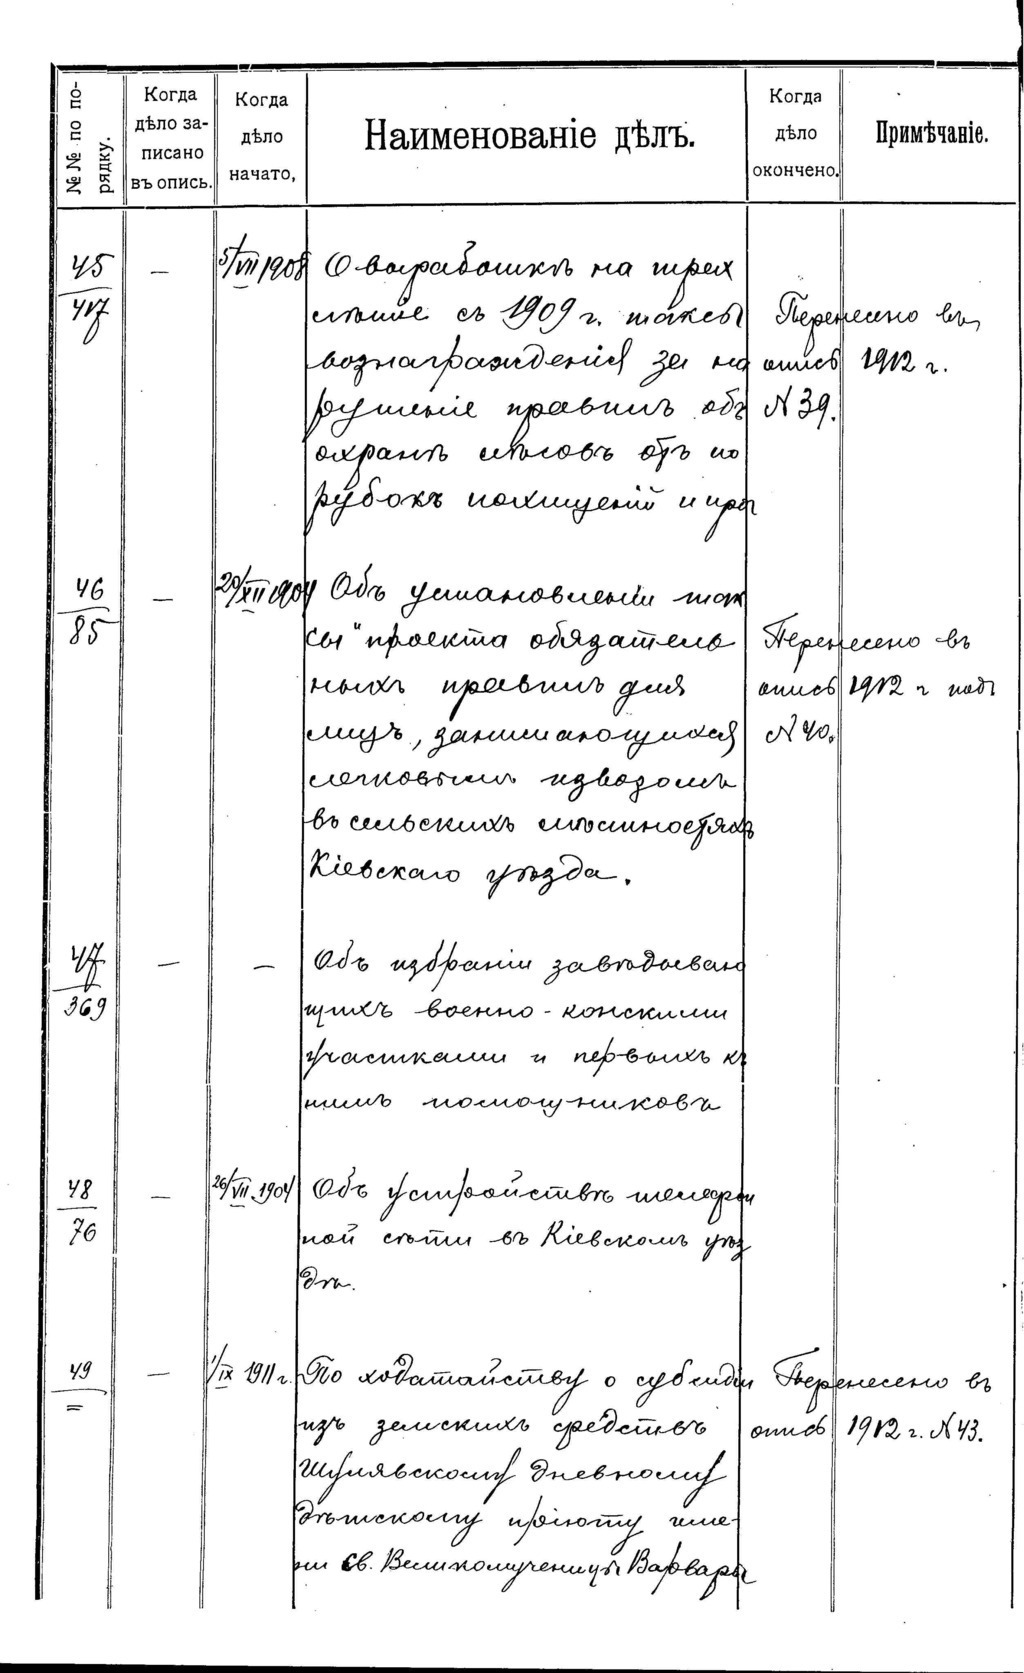 №№ по по-
рядку.
Когда
дѣло за-
писано
въ опись.
Когда
дѣло
начато,
Наименованіе дѣлъ.
Когда
дѣло
окончено.
Примѣчаніе.
45
417
—
5/VII 1908
О выработкѣ на трех
лѣтіе съ 1909 г. таксы
вознагражденія за на
рушеніе правилъ объ
охранѣ лѣсовъ отъ по
рубокъ похищеній и проч
Перенесено въ
опись 1912 г.
N 39.
46
85
—
20/XII 1904
Объ установленіи так
сы" проекта обязатель
ныхъ правилъ для
лицъ, занимающихся
легковымъ извозомъ
въ сельскихъ мѣстностяхъ
Кіевскаго уѣзда.
Перенесено въ
опись 1912 г подъ
N 40.
47
369
—
—
Объ избраніи завѣдываю
щихъ военно-конскими
участками и первыхъ къ
нимъ помощниковъ
48
76
—
26/VII 1904
Объ устройствѣ телефон
ной сѣти въ Кіевскомъ уѣз
дѣ.
49
=
—
1/IX 1911 г.
По ходатайству о субсидіи
изъ земскихъ средствъ
Шулявскому дневному
дѣтскому пріюту име-
ни св. Великомученицы Варвары
Перенесено въ
опись 1912 г. N 43.